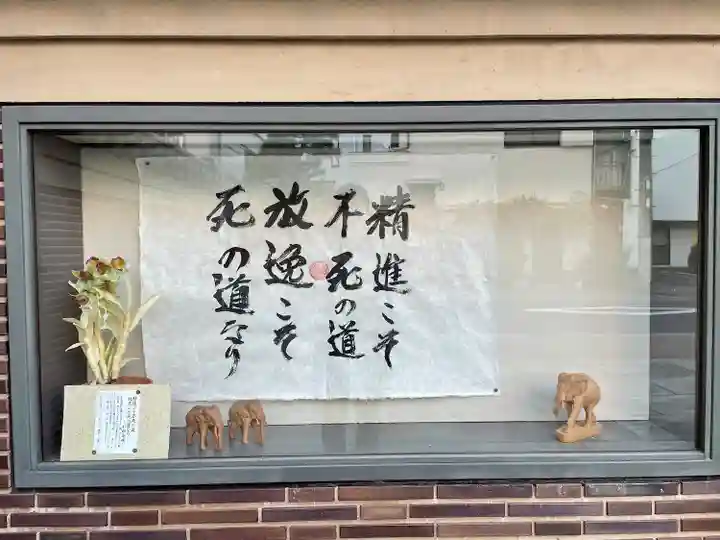 精進こそ
不死の道
放逸こそ
死の道なり